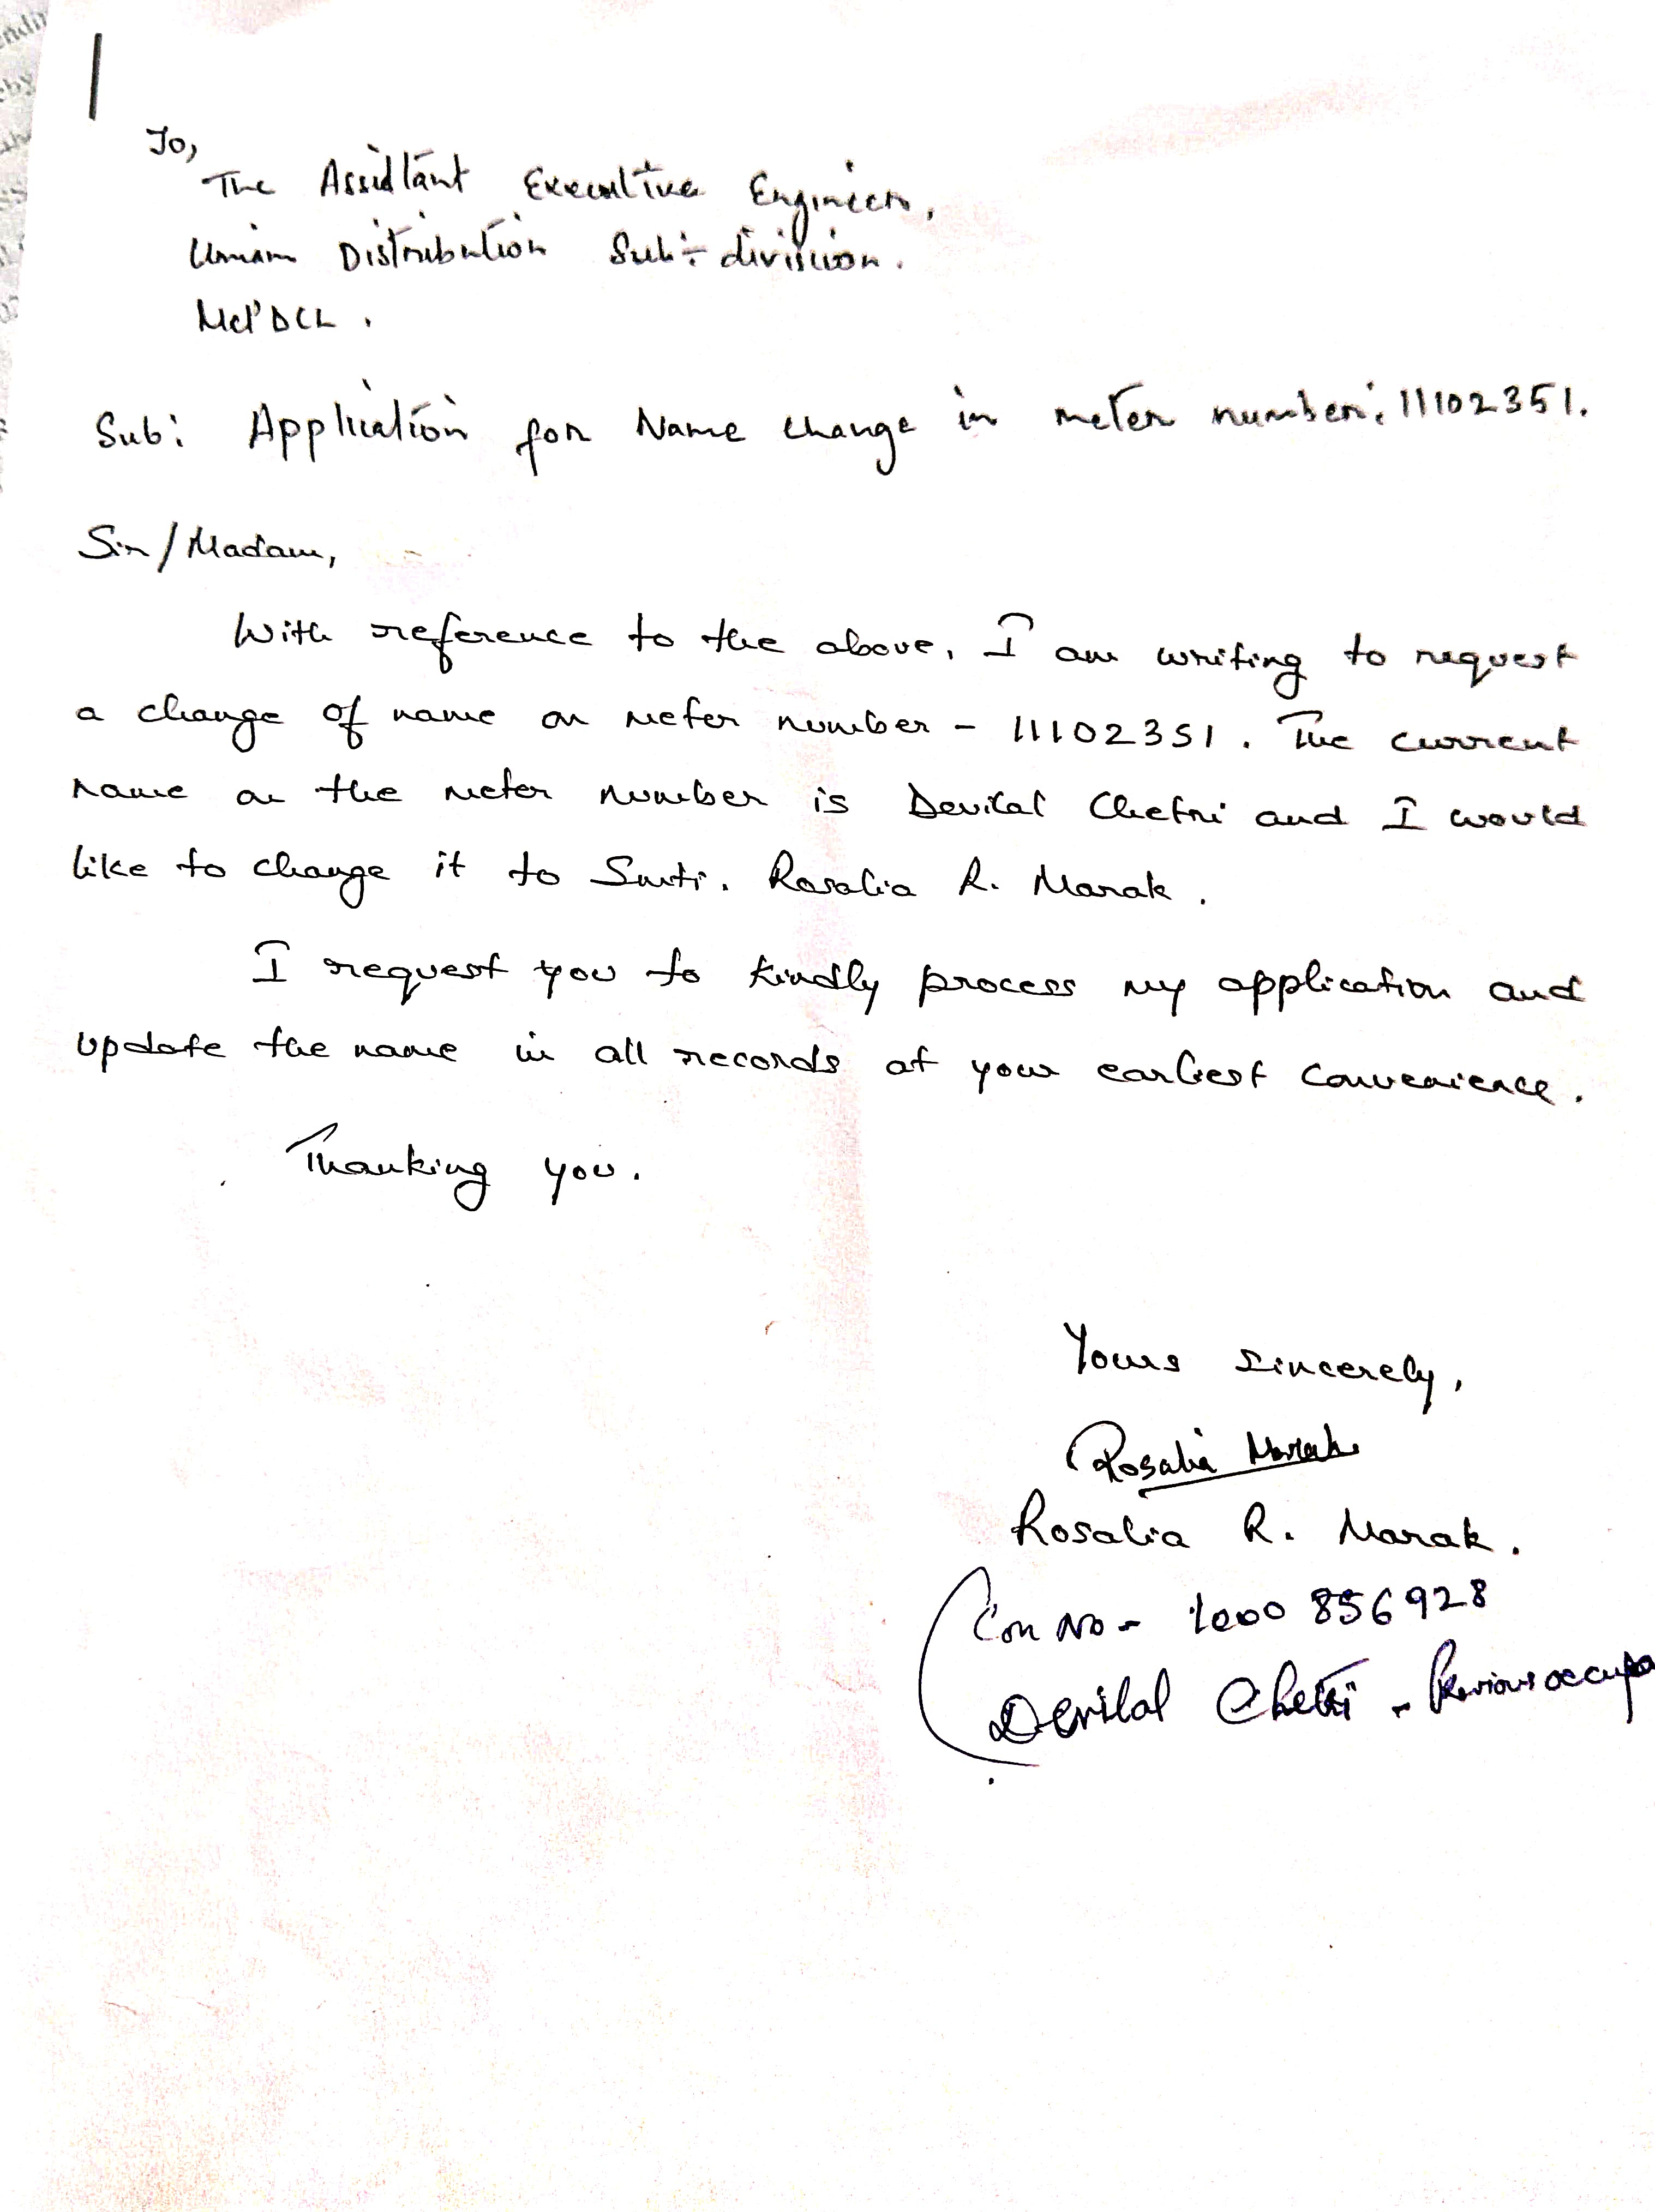 To,
The Assistant Executive Engineer,
Umiam Distribution Sub-division.
MePDCL.
Sub: Application for Name change in meter number: 11102351.
Sir/Madam,
With reference to the above, I am writing to request
a change of name on meter number - 11102351. The current
name on the meter number is Devilal Chetri and I would
like to change it to Smti. Rosalia R. Marak.
I request you to kindly process my application and
update the name in all records at your earliest convenience.
Thanking you.
Yours sincerely,
Rosalia Marak
Rosalia R. Marak.
Con No - 1000 856928
Devilal Chetri - Previous occupa